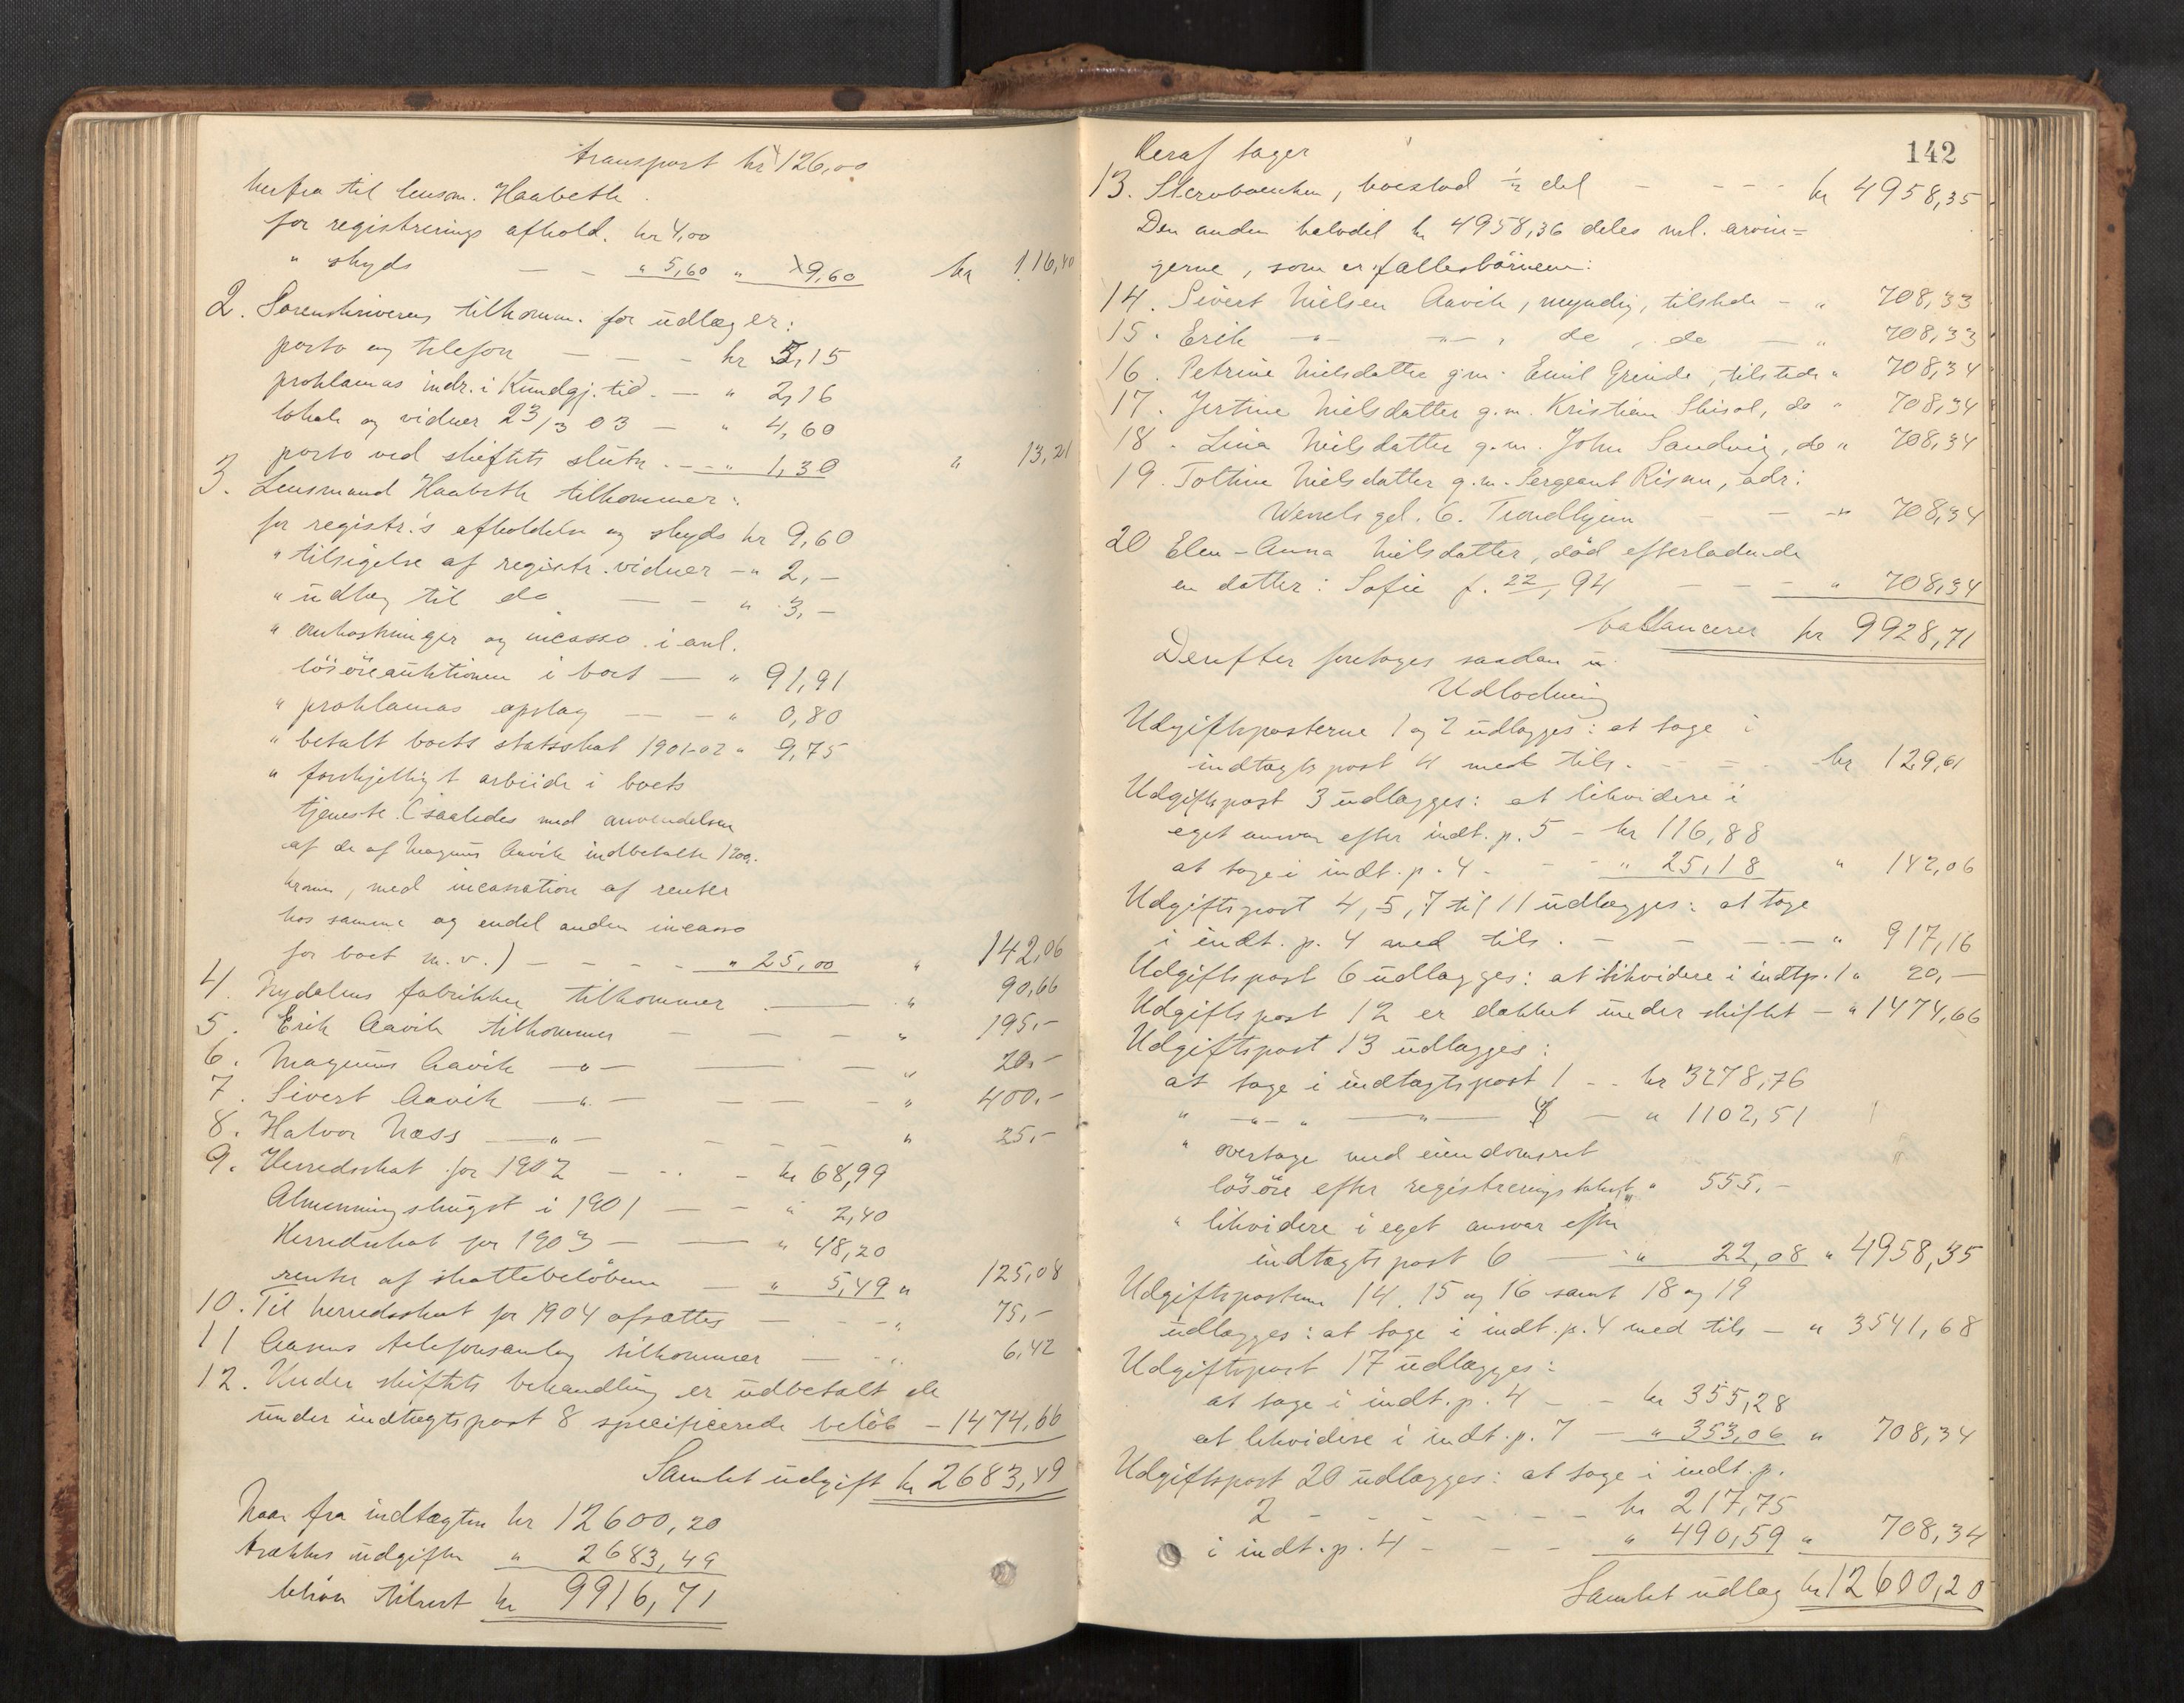 transport kr 126,00
herfra til lensm. Haabeth
for registrerings afhold. kr 4,00
" skyds — - " 5,60 " 9,60 kr 116,40
2. Sorenskriverens tilkomm. for udlæg er:
porto og telefon — — - kr 5,15
proklamas indr. i Kundgj. tid. — " 2,16
lokale og vidner 23/3 03 — " 4,60
porto ved skiftets slutn. — " 1,30 " 13,21
3. Lensmand Haabeth tilkommer:
for registr.'s afholdelse og skyds kr 9,60
" tilsigelse af registr. vidner — " 2,-
" udlæg til do — - " 3,-
" omkostninger og incasso i anl.
lösöreauktionen i boet — " 91,91
" proklamas opslag — - " 0,80
" betalt boets statsskat 1901-02 " 9,75
" forskjelligt arbeide i boets
tjeneste (saaledes med anvendelsen
af de af Magnus Aavik indbetalte 1200.
kroner, med incassation af renter
hos samme og endel anden incasso
for boet m.v.) — - - - " 25,00 " 142,06
4. Nydalens fabrikker tilkommer — " 90,66
5. Erik Aavik tilkommer — — — " 195.-
6. Magnus Aavik — " — — — " 20.-
7. Sivert Aavik — " — — — " 400.-
8. Halvor Næss — " — - - - " 25.-
9. Herredsskat for 1902 — - - kr 68,99
Almenningskugst i 1901 — - " 2,40
Herredsskat for 1903 — — " 48,20
renter af skattebelöbene — " 5,49 " 125,08
10. Til herredsskat for 1904 afsættes — - - " 75,-
11 Aasens telefonsamlag tilkommer — - " 6,42
12. Under skiftets behandling er udbetalt de
under indtægtspost 8 specificerede belöb — 1474,66
Samlet udgift kr 2683,49
Naar fra indtægten kr 12600,20
trækkes udgiften " 2683,49
bliver tilrest kr 9916,71
142
Heraf tager
13. Stervboenken, boeslod ½ del - - - - kr 4958,35
Den anden halvdel kr 4958,36 deles ml. arvin=
gerne, som er fællesbörnene:
14. Sivert Nielsen Aavik, myndig, tilstede - " 708,33
15. Erik — " — — " — , do , do — " 708,33
16. Petrine Nielsdatter g.m. Emil Grinde, tilstede " 708,34
17. Jertine Nielsdatter g.m. Kristian Skisol, do " 708,34
18. Lina Nielsdatter g.m. John Sandvig, do " 708,34
19. Toltine Nielsdatter g.m. Sergeant Risan, adr:
Wessels gd. 6. Trondhjem — — " 708,34
20 Elen-Anna Nielsdatter, död efterladende
en datter: Sofie f. 22/1 94 — - - " 708,34
ballancerer kr 9928,71
Derefter foretages saadan
Udlodning
Udgiftsposterne 1 og 2 udlægges: at tage i
indtægtspost 4 med tils. - - - - kr 129,61
Udgiftspost 3 udlægges: at likvidere i
eget ansvar efter indt. p. 5 - kr 116,88
at tage i indt. p. 4 - - " 25,18 " 142,06
Udgiftspost 4, 5, 7 til 11 udlægges: at tage
i indt. p. 4 med tils. - - - — " 917,16
Udgiftspost 6 udlægges: at likvidere i indtp. 1 " 20,-
Udgiftspost 12 er dækket under skiftet — " 1474,66
Udgiftspost 13 udlægges:
at tage i indtægtspost 1 - - kr 3278,76
" — " — " — " — 4 — " 1102,51
" overtage med eiendomsret
lösöre efter registreringstakst " 555,-
" likvidere i eget ansvar efter
indtægtspost 6 — " 22,08 " 4958,35
Udgiftsposterne 14, 15 og 16 samt 18 og 19
udlægges: at tage i indt. p. 4 med tils — " 3541,68
Udgiftspost 17 udlægges:
at tage i indt. p. 4 - - kr 355,28
at likvidere i indt. p. 7 — " 353,06 " 708,34
Udgiftspost 20 udlægges: at tage i indt. p.
2 - - - - - - kr 217,75
i indt. p. 4 - - - " 490,59 " 708,34
Samlet udlæg kr 12600,20